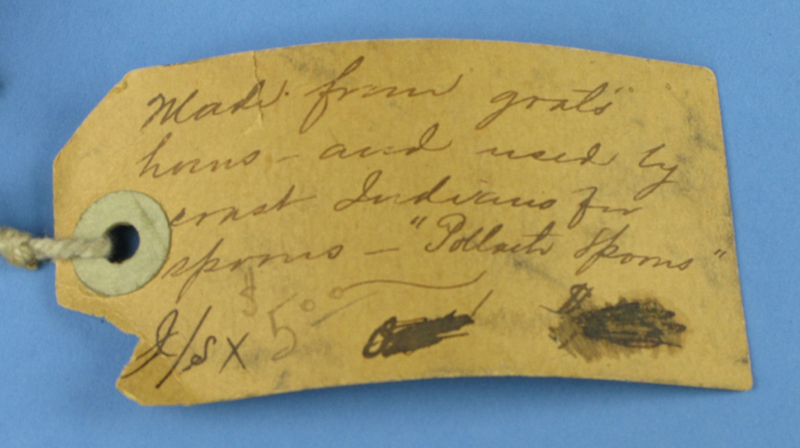 Made from goats
horns - and used by
coast Indians for
spoons - "Potlach Spoons"
$5.00
I/S X